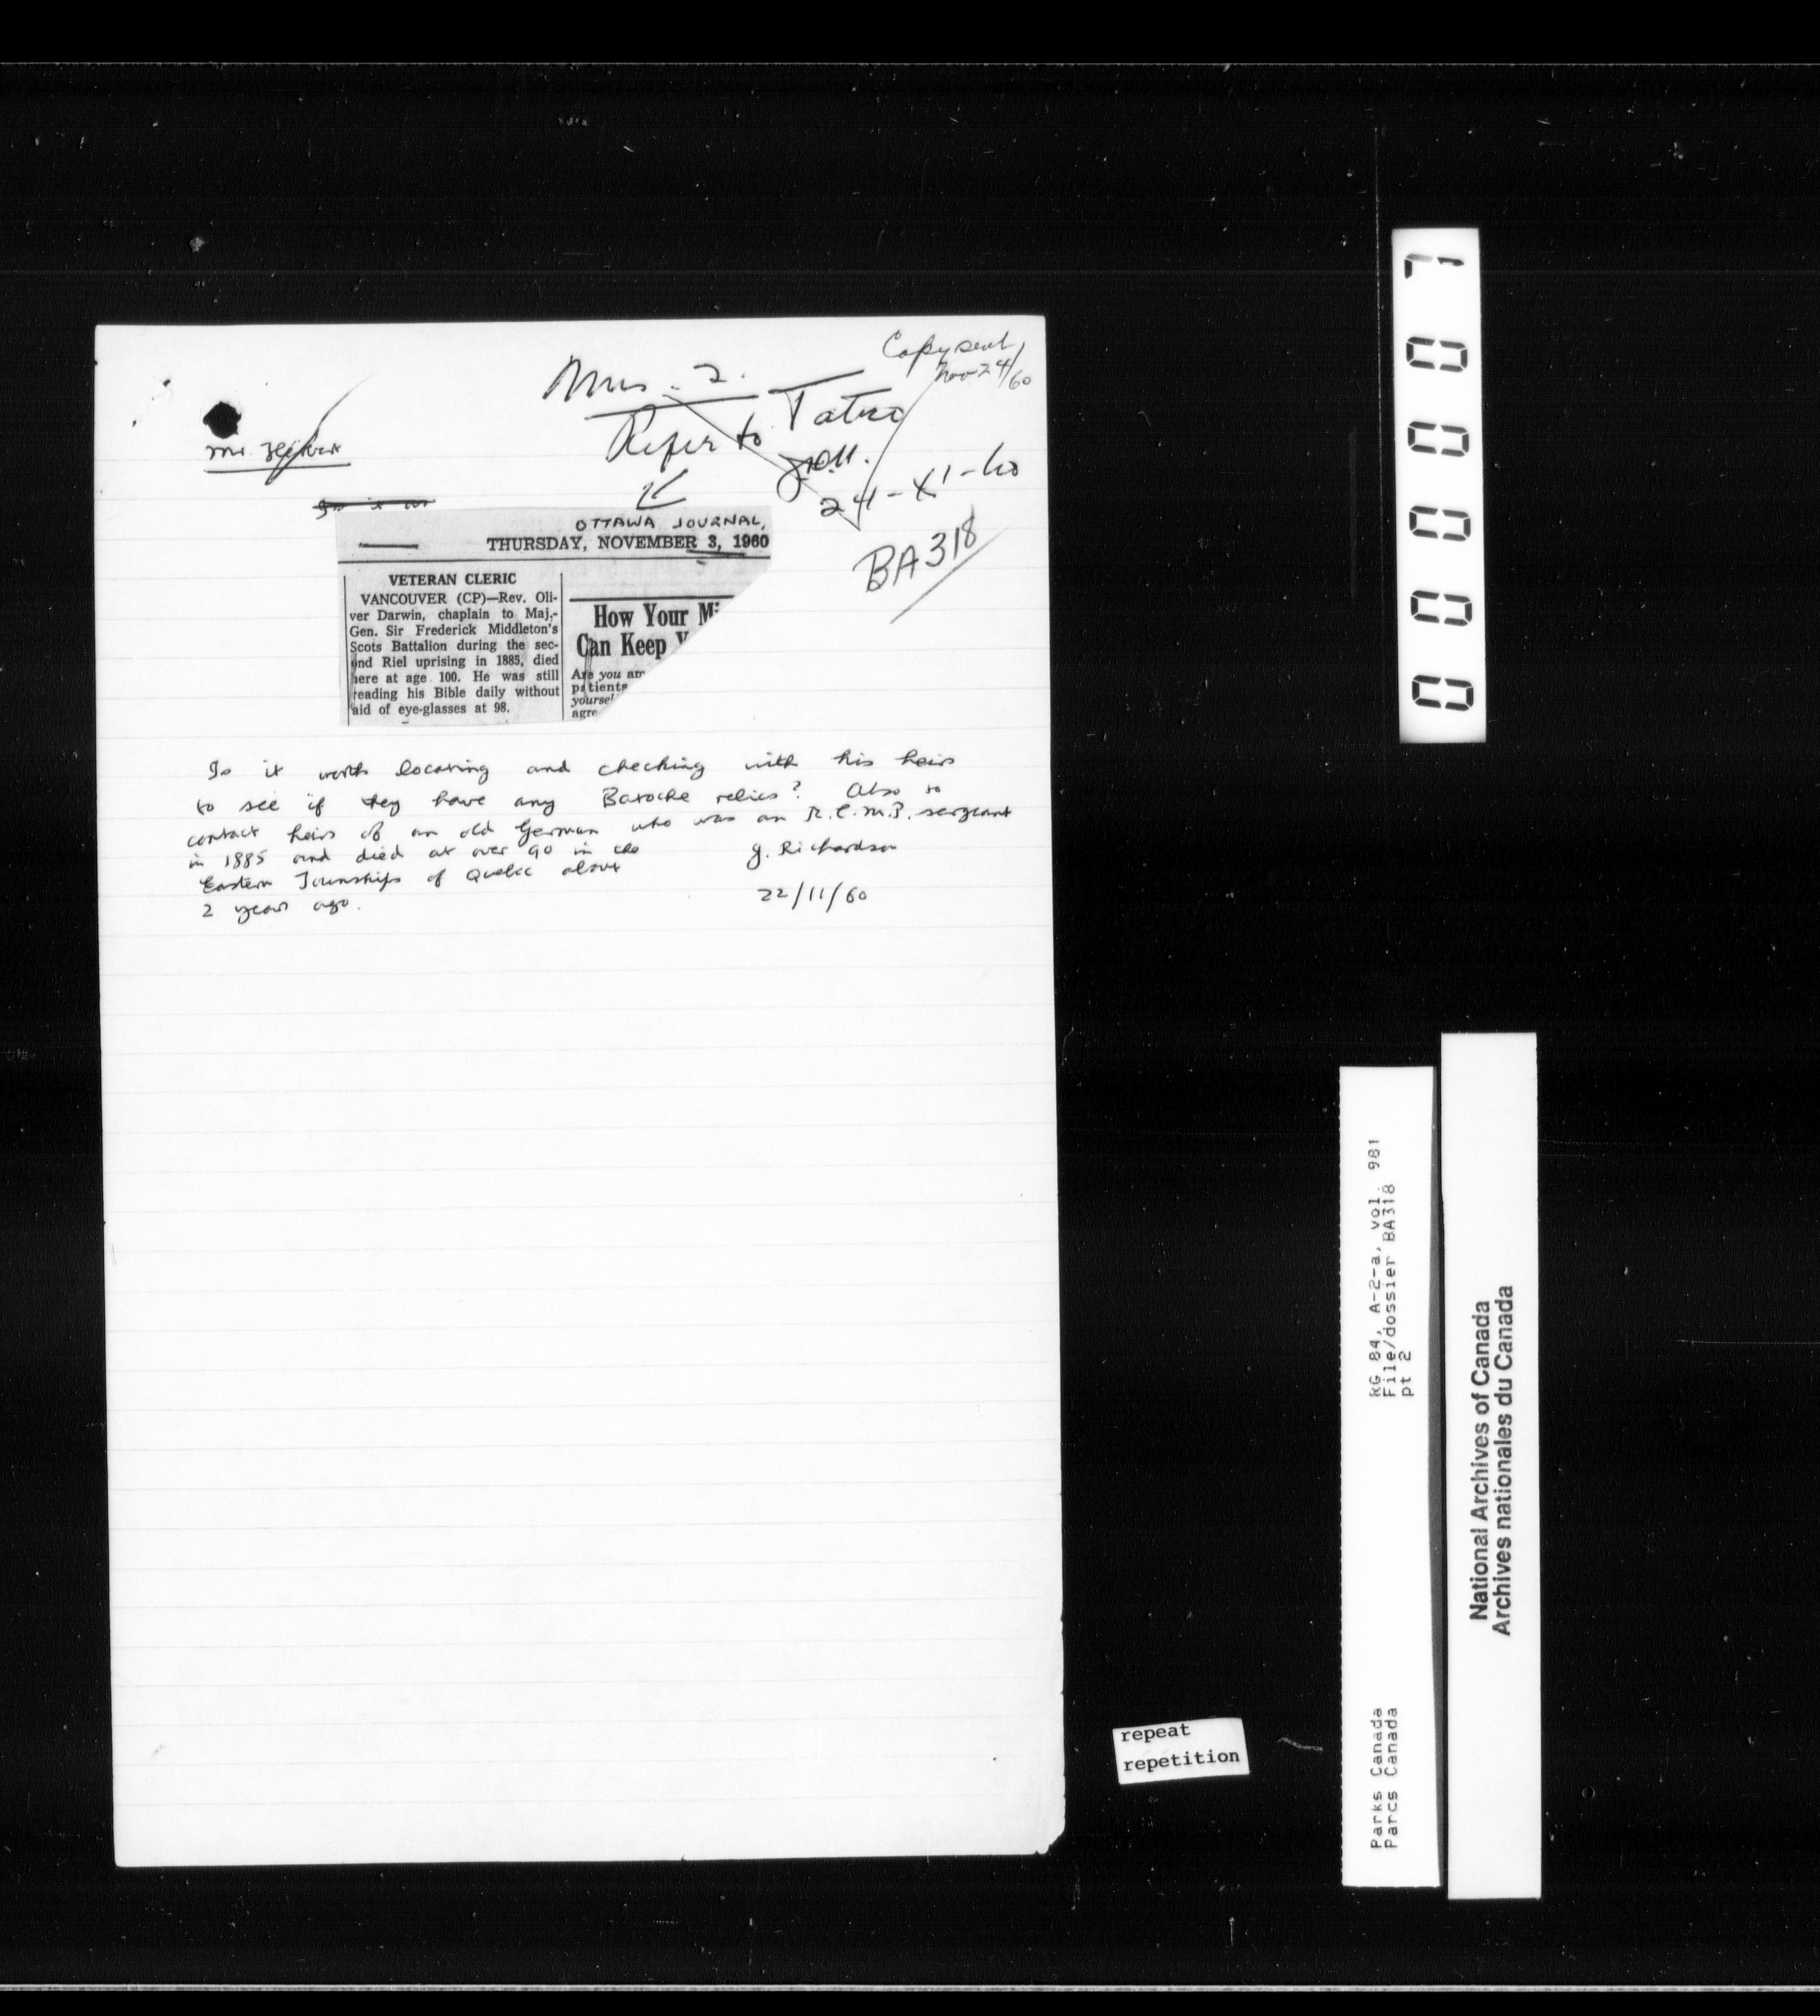 Copy sent
Nov 24/60
Mrs. Z.
Refer to Tatro
24-XI-60
BA318
Mr.
OTTAWA JOURNAL,
THURSDAY, NOVEMBER 3, 1960
VETERAN CLERIC
VANCOUVER (CP)—Rev. Oli-
ver Darwin, chaplain to Maj.-
Gen. Sir Frederick Middleton's
Scots Battalion during the sec-
ond Riel uprising in 1885, died
here at age 100. He was still
reading his Bible daily without
aid of eye-glasses at 98.
How Your Mi
Can Keep Y
Are you am
patients
yoursel
agre
Is it worth locating and checking with his heirs
to see if they have any Batoche relics? Also to
contact heirs of an old German who was an R.C.M.P. sergeant
in 1885 and died at over 90 in the
Eastern Townships of Quebec about
2 years ago.
J. Richardson
22/11/60
0000007
RG 84, A-2-a, vol. 981
File/dossier BA318
pt 2
Parks Canada
Parcs Canada
National Archives of Canada
Archives nationales du Canada
repeat
repetition